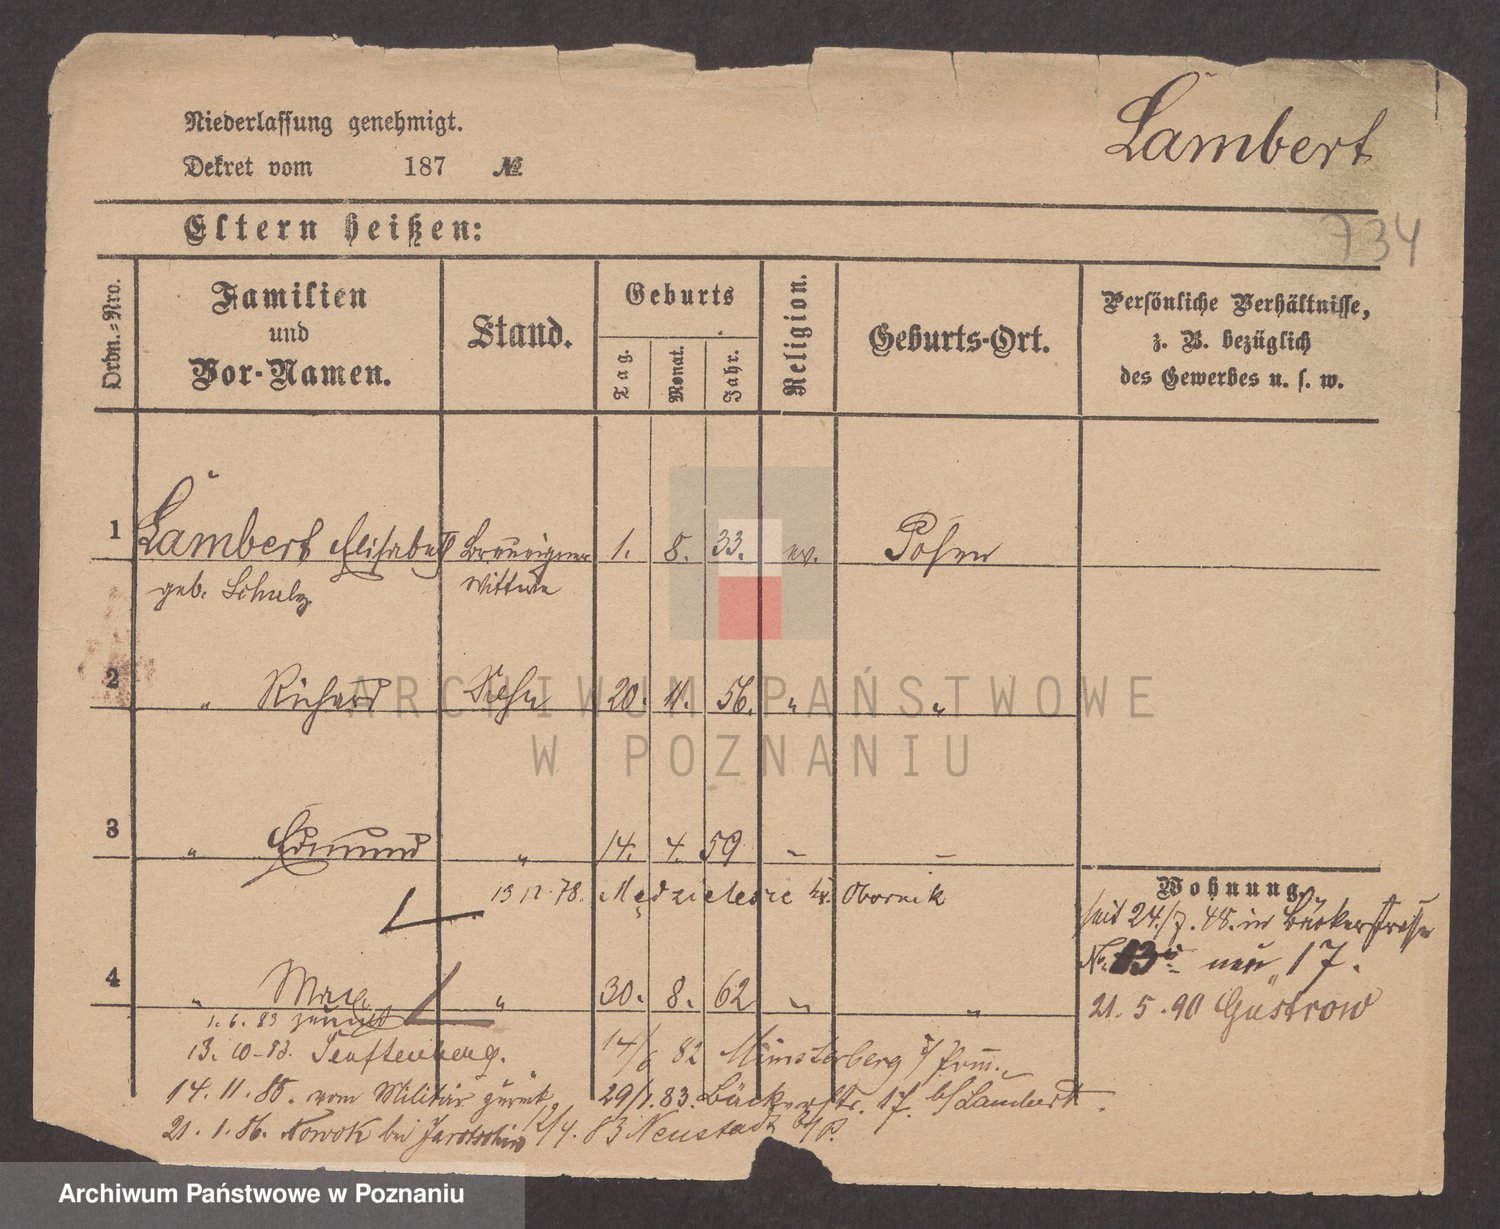 Lambert
Niederlassung genehmigt.
Dekret vom 187 №
Eltern heißen:
734
Ordn.-Nro.
Familien
und
Vor-Namen.
Stand.
Geburts
Tag.
Monat.
Jahr.
Religion.
Geburts-Ort.
Persönliche Verhältnisse,
z. B. bezüglich
des Gewerbes u. s. w.
1 Lambert Elisabeth 1. 8. 33. ev. Posen
geb. Schulz Wittwe
2 " Richard Sohn 20. 11. 56. " "
3 " Edmund " 14. 4. 59
13 12. 78. Obornik
Wohnung.
seit 24./7. 48. in Bäckerstrasse
No. 13 neu 17.
4 " Max " 30. 8. 62 " "
21. 5. 90 Güstrow
1. 6. 83 zurück
13. 10-83. 14/6 82 Münsterberg
14. 11. 85. vom Militär zurück 29/1. 83. Bäckerstr. 17. b/Lambert.
21. 1. 86. Nowok bei Jarotschin 12/4. 83 Neustadt
ARCHIWUM PAŃSTWOWE
W POZNANIU
Archiwum Państwowe w Poznaniu